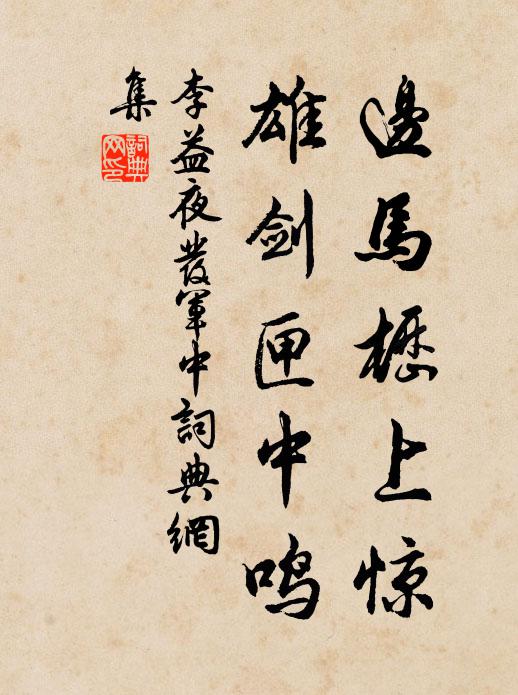 邊馬櫪上惊
雄剑匣中鸣
李益夜發軍中詞典網
集
詞典
网印